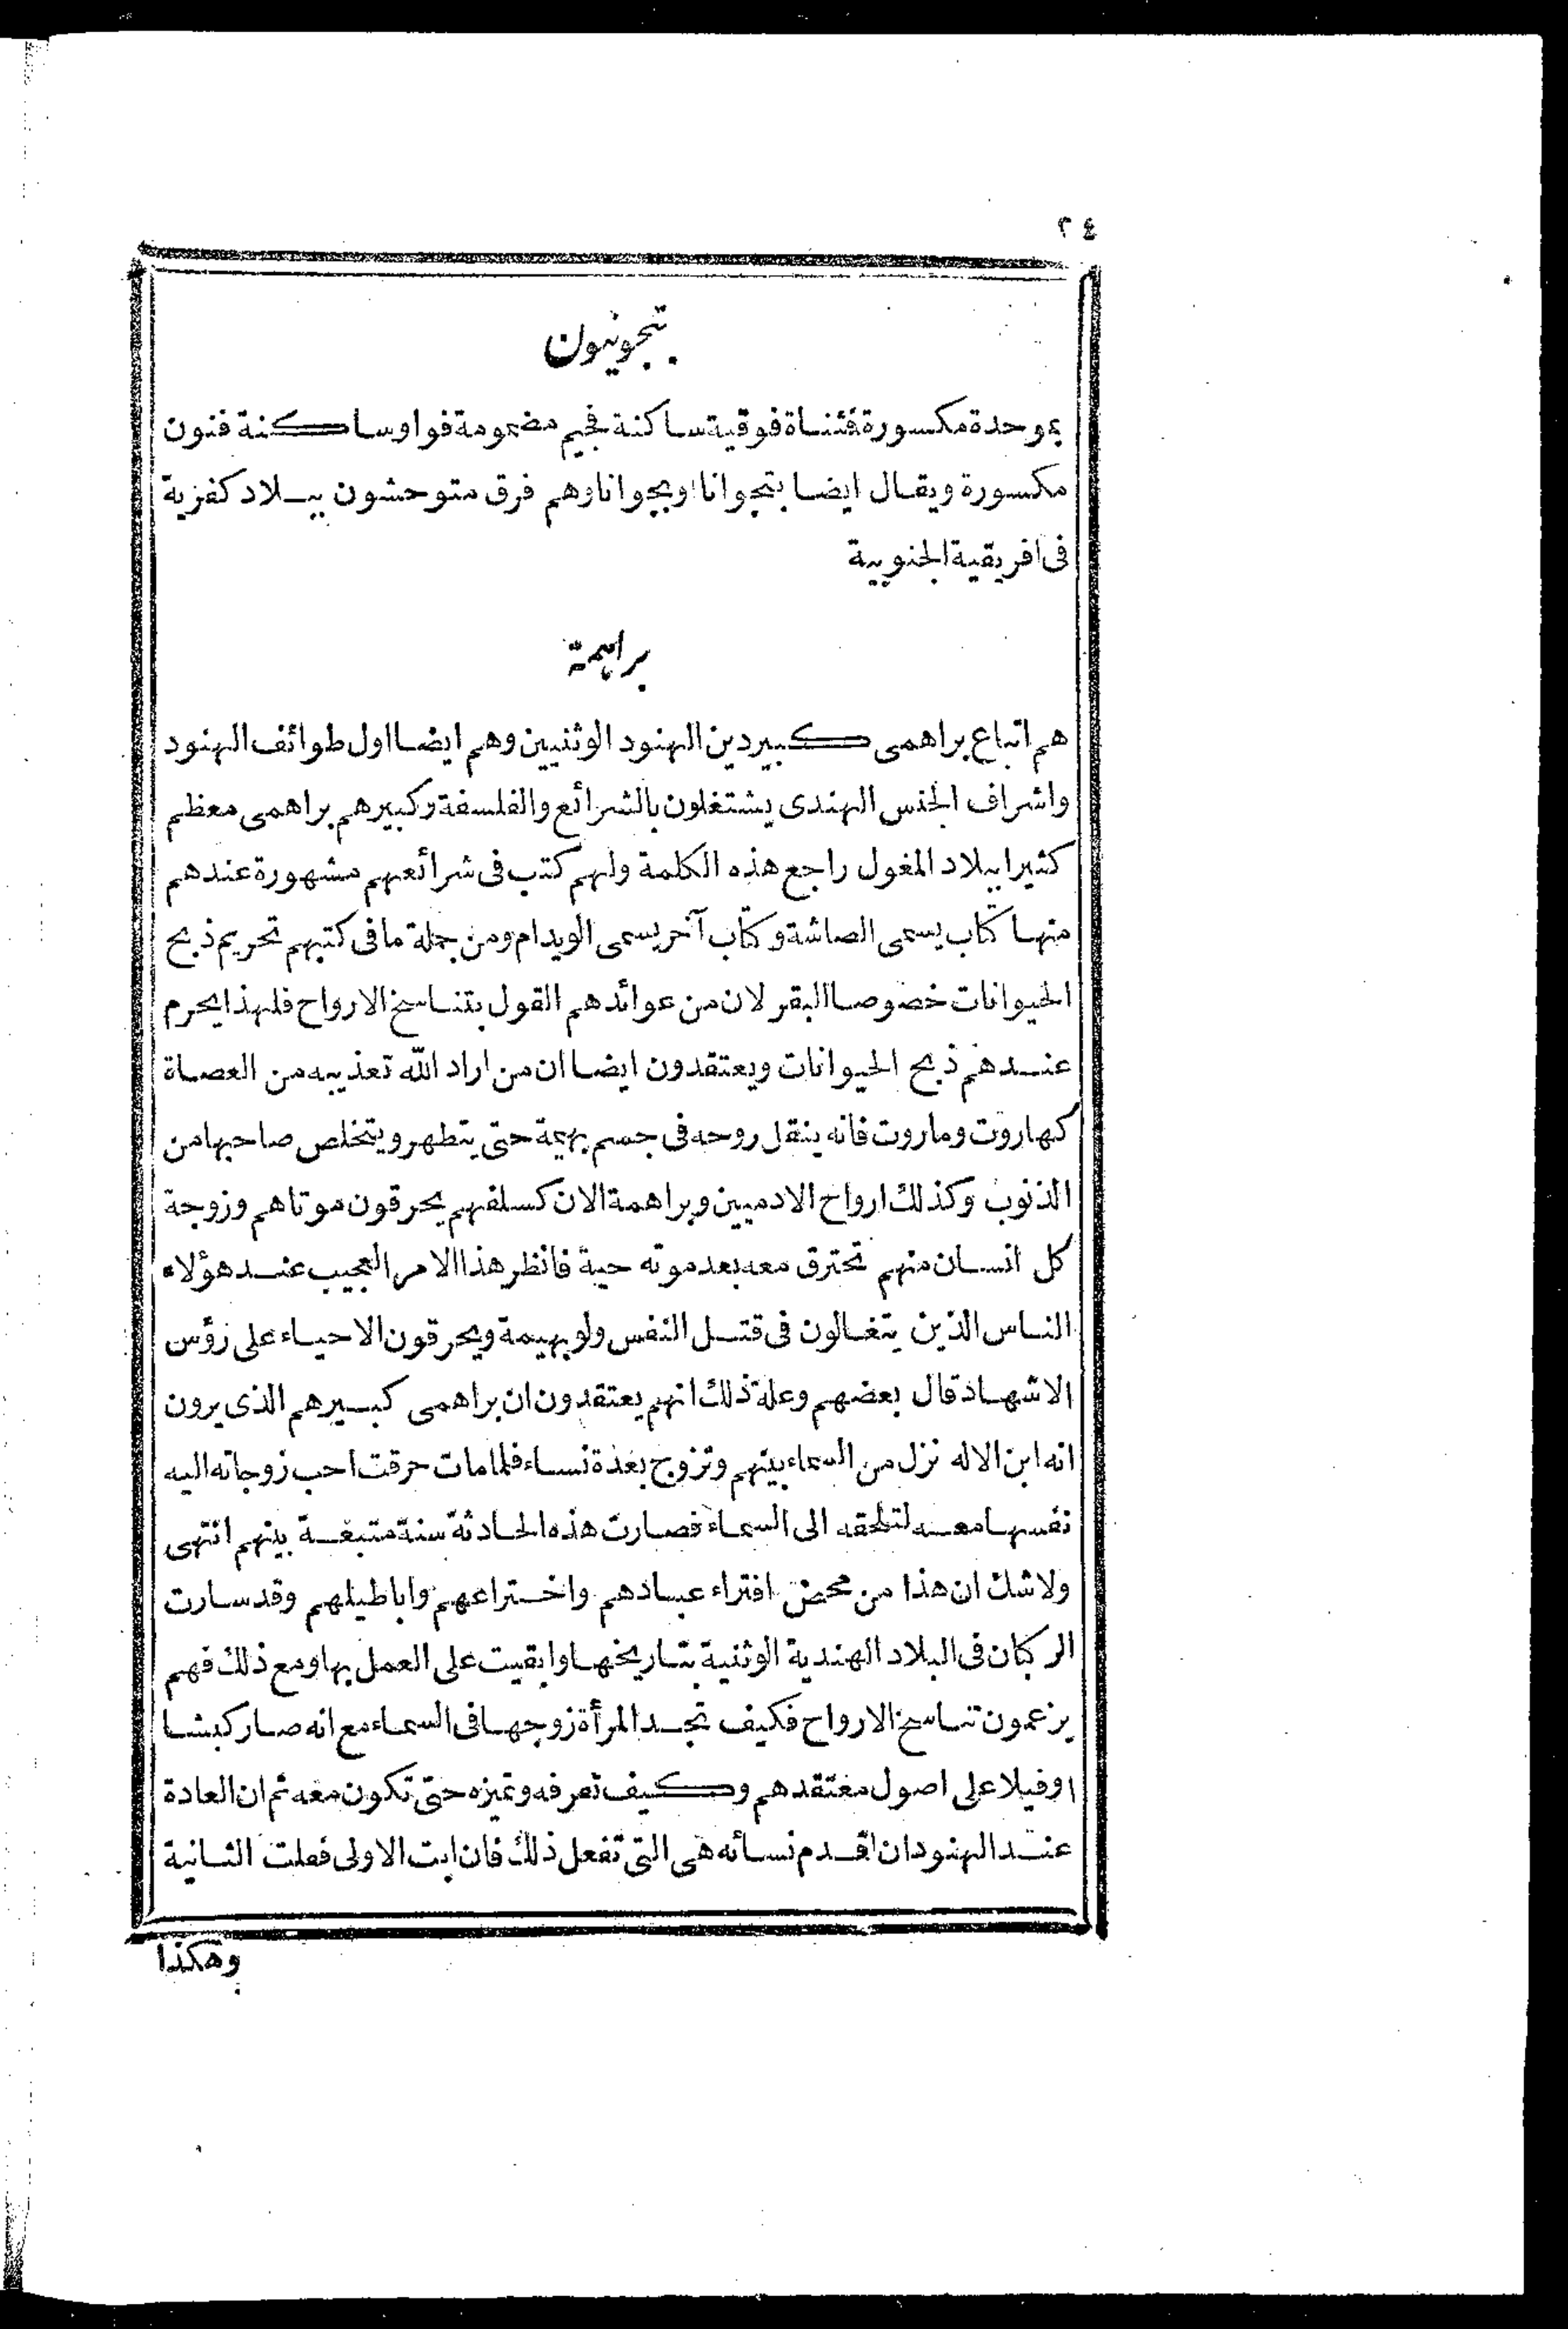 ٢٤
بتجونيون
بموحدة مكسورة فمثناة فوقية ساكنة فجيم مضمومة فواو ساكنة فنون
مكسورة ويقال ايضا بتجوانا او بجوانا وهم فرق متوحشون ببلاد كفرية
فى افريقية الجنوبية
براهمة
هم اتباع براهمى كبير دين الهنود الوثنيين وهم ايضا اول طوائف الهنود
واشراف الجنس الهندى يشتغلون بالشرائع والفلسفة وكبيرهم براهمى معظم
كثيرا ببلاد المغول راجع هذه الكلمة ولهم كتب فى شرائعهم مشهورة عندهم
منها كتاب يسمى الصاشة وكتاب آخر يسمى الويدام ومن جملة ما فى كتبهم تحريم ذبح
الحيوانات خصوصا البقر لان من عوائدهم القول بتناسخ الارواح فلهذا يحرم
عندهم ذبح الحيوانات ويعتقدون ايضا ان من اراد الله تعذيبه من العصاة
كهاروت وماروت فانه ينقل روحه فى جسم بهيمة حتى يتطهر ويتخلص صاحبها من
الذنوب وكذلك ارواح الادميين وبراهمة الان كسلفهم يحرقون موتاهم وزوجة
كل انسان منهم تحترق معه بعد موته حية فانظر هذا الامر العجيب عند هؤلاء
الناس الذين يتغالون فى قتل النفس ولو بهيمة ويحرقون الاحياء على رؤس
الاشهاد قال بعضهم وعلة ذلك انهم يعتقدون ان براهمى كبيرهم الذى يرون
انه ابن الاله نزل من السماء بينهم وتزوج بعدة نساء فلما مات حرقت احب زوجاته اليه
نفسها معه لتلحقه الى السماء فصارت هذه الحادثة سنة متبعة بينهم انتهى
ولا شك ان هذا من محض افتراء عبادهم واختراعهم واباطيلهم وقد سارت
الركبان فى البلاد الهندية الوثنية بتاريخها وابقيت على العمل بها ومع ذلك فهم
يزعمون تناسخ الارواح فكيف تجد المرأة زوجها فى السماء مع انه صار كبشا
او فيلا على اصول معتقدهم وكيف تعرفه وتميزه حتى تكون معه ثم ان العادة
عند الهنود ان اقدم نسائه هى التى تفعل ذلك فان ابت الاولى فعلت الثانية
وهكذا